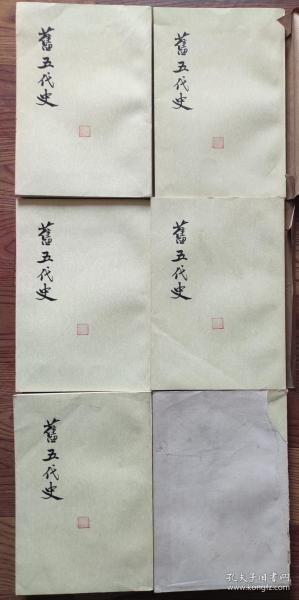 舊五代史
舊五代史
舊五代史
舊五代史
舊五代史
孔夫子旧书网